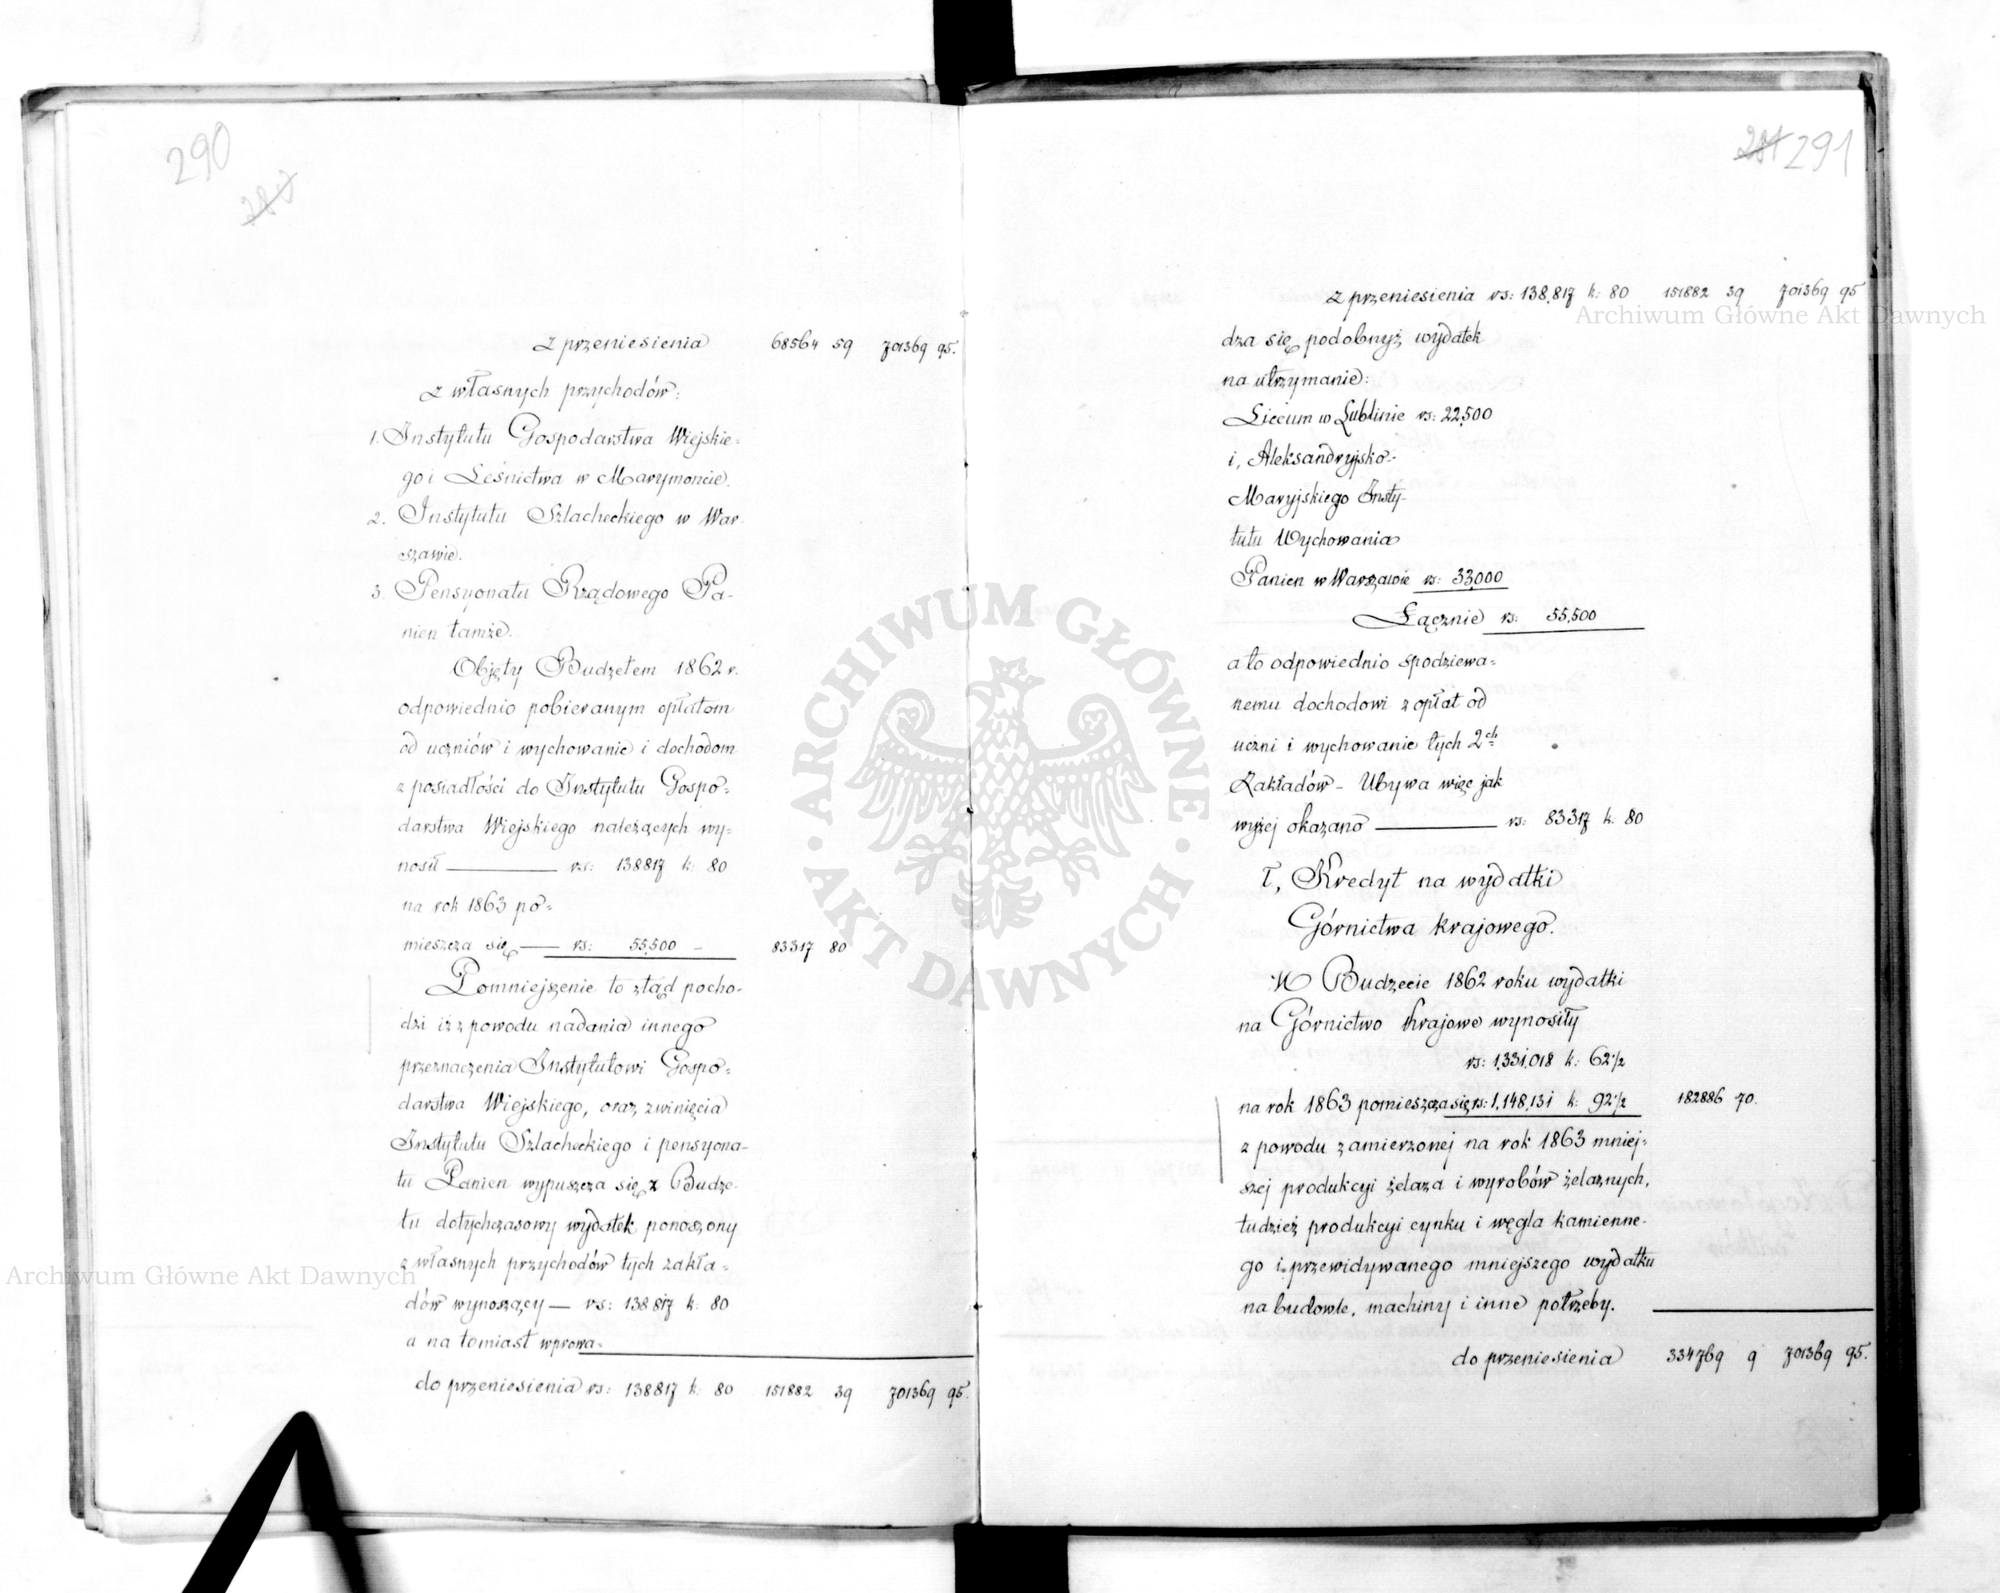 290
z przeniesienia 68564 59 701369 95.
z własnych przychodów:
1. Instytutu Gospodarstwa Wiejskie=
go i Leśnictwa w Marymoncie.
2. Instytutu Szlacheckiego w War-
szawie.
3. Pensyonatu Rządowego Pa-
nien tamże.
Objęty Budżetem 1862 r.
odpowiednio pobieranym opłatom
od uczniów i wychowanic i dochodom
z posiadłości do Instytutu Gospo=
darstwa Wiejskiego należących wy=
nosił ——— rs: 138817 k: 80
na rok 1863 po=
mieszcza się —— rs: 55,500 – 83317 80
Pomniejszenie to ztąd pocho-
dzi iż z powodu nadania innego
przeznaczenia Instytutowi Gospo=
darstwa Wiejskiego, oraz zwinięcia
Instytutu Szlacheckiego i pensyona-
tu Panien wypuszcza się z Budże-
tu dotychczasowy wydatek ponoszony
z własnych przychodów tych zakła=
dów wynoszący — rs: 138817 k: 80
a na tomiast wprowa=
do przeniesienia rs: 138817 k: 80 151882 39 701369 95.
291
z przeniesienia rs: 138,817 k: 80 151882 39 701369 95
dza się podobnyż wydatek
na utrzymanie:
Liceum w Lublinie rs: 22,500
i, Aleksandryjsko-
Maryjskiego Insty-
tutu Wychowania
Panien w Warszawie rs: 33,000
Łącznie rs: 55,500
a to odpowiednio spodziewa=
nemu dochodowi z opłat od
uczni i wychowanic tych 2ch
Zakładów – Ubywa więc jak
wyżej okazano ——— rs: 83317 k: 80
ł, Kredyt na wydatki
Górnictwa krajowego.
W Budżecie 1862 roku wydatki
na Górnictwo krajowe wynosiły
rs: 1,331,018 k: 62 1/2
na rok 1863 pomieszcza się rs: 1,148,131 k: 92 1/2 182886 70.
z powodu zamierzonej na rok 1863 mniej=
szej produkcyi żelaza i wyrobów żelaznych,
tudzież produkcyi cynku i węgla kamienne-
go i przewidywanego mniejszego wydatku
na budowle, machiny i inne potrzeby.
do przeniesienia 334769 9 701369 95.
Archiwum Główne Akt Dawnych
Archiwum Główne Akt Dawnych
ARCHIWUM GŁÓWNE · AKT DAWNYCH ·